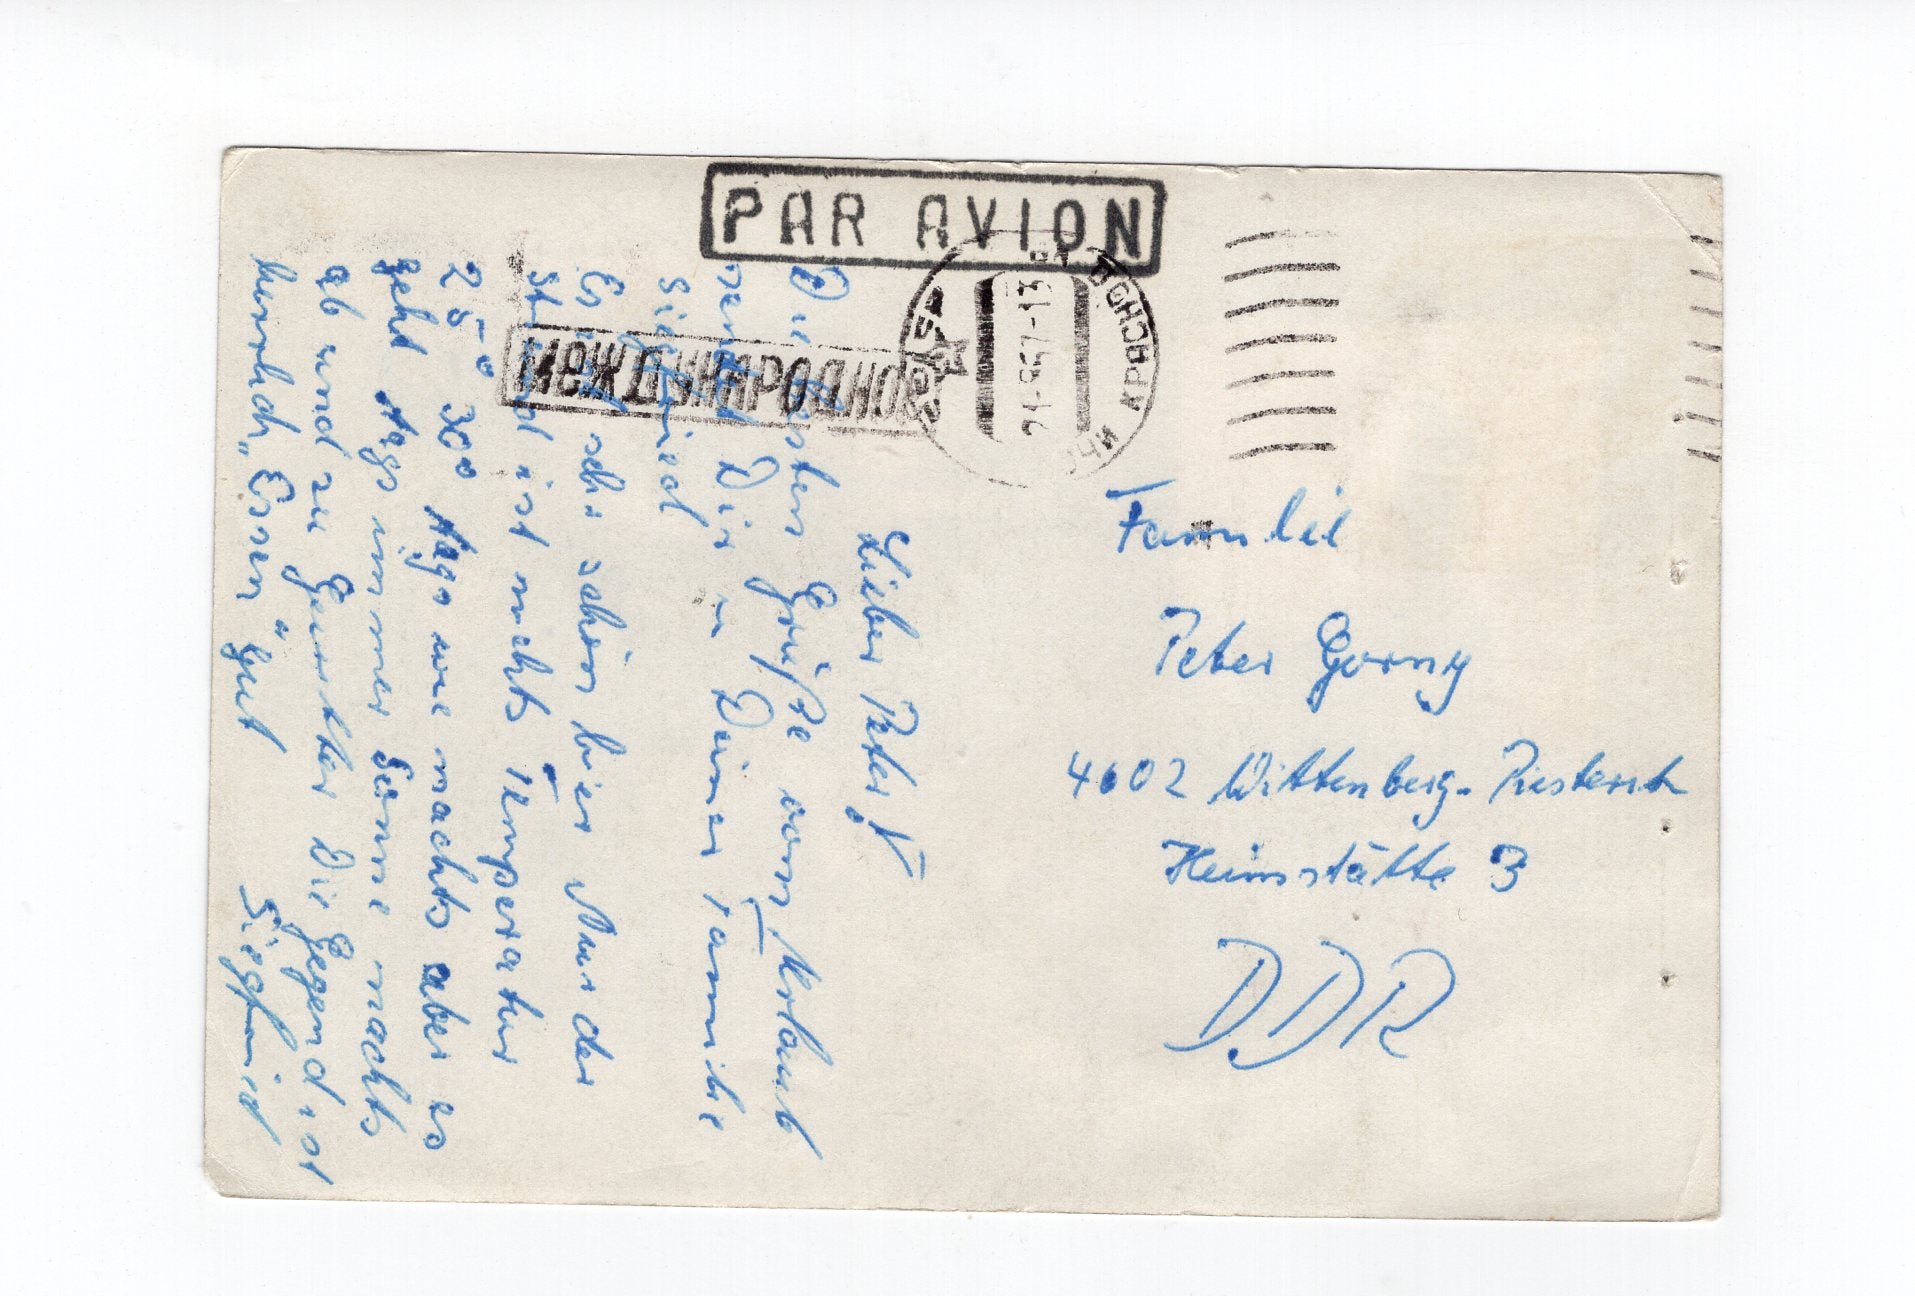 PAR AVION
МЕЖДУНАРОДНОЕ
Lieber Peter!
Die besten Grüße vom Urlaub
sendet Dir u Deiner Familie
Siegfried
Es ist sehr schön hier Nur der
Strand ist nichts Temperatur
25° 30° tags wie nachts aber es
geht tags immer Sonne nachts
ab und zu Gewitter Die Gegend ist
herrlich, Essen "gut
Siegfried
Familie
Peter Gorny
4602 Wittenberg-Piesteritz
Heimstätte 3
DDR